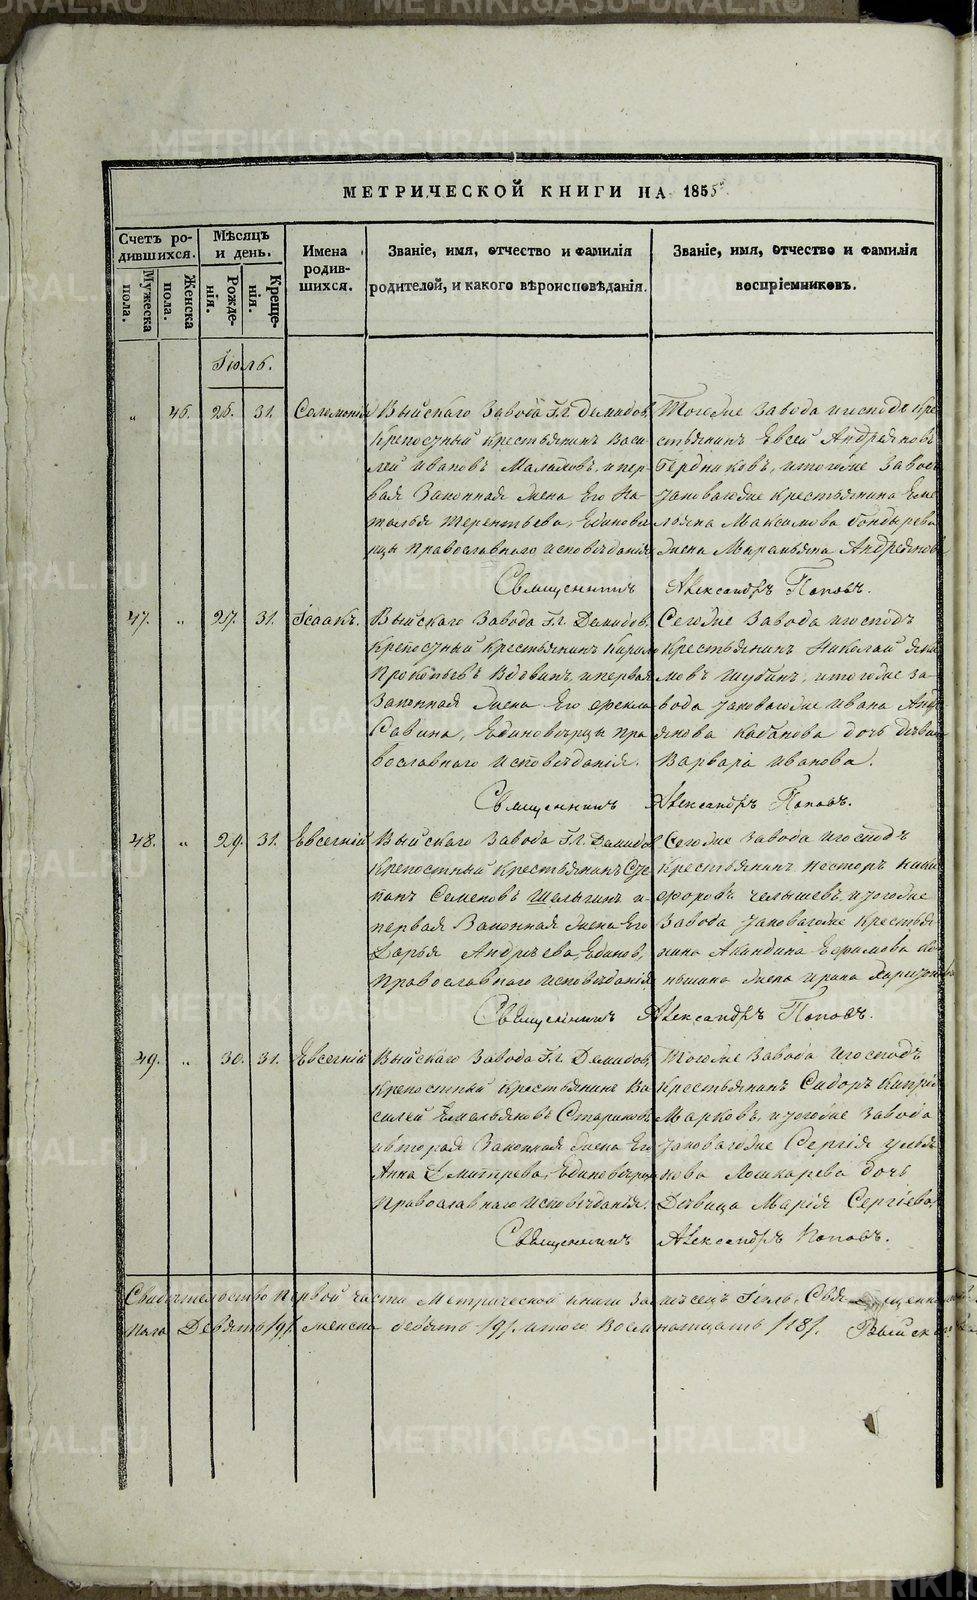 МЕТРИЧЕСКОЙ КНИГИ НА 1855
Счетъ ро-
дившихся.
Мужеска
пола.
Женска
пола.
Мѣсяцъ
и день.
Рожде-
нія.
Креще-
нія.
Имена
родив-
шихся.
Званіе, имя, отчество и фамилія
родителей, и какого вѣроисповѣданія.
Званіе, имя, отчество и фамилія
воспріемниковъ.
Іюль.
„ 46. 26. 31. Соломонія
Выйскаго Завода Г.г. Демидов,
крепосный крестьянинъ Васи-
лей Ивановъ Малыховъ, и пер-
вая Законная жена Его На-
талья Терентьева, Единовѣ-
рцы православнаго исповѣданія
Тогоже завода и господъ кре-
стьянинъ Евсей Андреяновъ
Бердниковъ, итогоже завода
крестьянина Еме-
льяна Максимова Бондырева
жена Андреянова
Священникъ Александръ Поповъ.
47. „ 27. 31. Ісаакъ.
Выйскаго Завода Г.г. Демидов,
крепосный крестьянинъ Кирило
Прокопьевъ Вдовинъ, и первая
Законная жена Его Фекла
Савина, Единовѣрцы пра
вославнаго исповѣданія.
Сегоже завода игосподъ
крестьянинъ Николай Яки
мовъ Шубинъ, итогоже за-
вода Ивана Андр
янова Кабанова дочь дѣвица
Варвара Иванова.
Священникъ Александръ Поповъ.
48. „ 29. 31. Евсегній
Выйскаго Завода Г.г. Демидов
крепостный крестьянинъ Сте
панъ Семеновъ Шалыгинъ и
первая Законная жена Его
Дарья Андреева, Единов,
православнаго исповѣданія
Сегоже завода игосподъ
крестьянинъ Несторъ Ники
форовъ Челышевъ,
завода крестья
нина Акиндина Ефимова
жена Ирина
Священникъ Александръ Поповъ.
49. „ 30. 31. Евсегній
Выйскаго Завода Г.г. Демидов,
крепостный крестьянине Ва
силей Емельяновъ Стариковъ
ивторая Законная жена Его
Анна Дмитрева, Единовѣрцы
православнаго исповѣданія.
Тогоже завода игосподъ
крестьянинъ Сидоръ
Марковъ, завода
Сергія Улья
нова Лошкарева дочь
Дѣвица Марія Сергіева,
Священникъ Александръ Поповъ.
первой части Метрической книги За мѣсецъ Іюль,
пола Девять /9/. женска девять /9/. итого Восемнатцать /18/.
METRIKI.GASO-URAL.RU